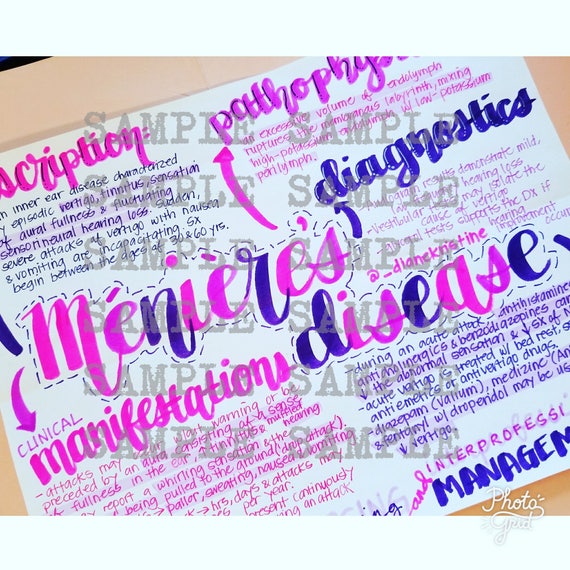 scription:
an inner ear disease characterized
by episodic vertigo, tinnitus, sensation
of aural fullness & fluctuating
sensorineural hearing loss. sudden,
severe attacks of vertigo with nausea
& vomiting are incapacitating. sx
begin between the ages of 30 & 60 yrs.
pathophys
an excessive volume of endolymph
ruptures the membranous labyrinth, mixing
high-potassium endolymph w/ low-potassium
perilymph.
diagnostics
results demonstrate mild,
hearing loss
vestibular
may isolate the
cause of vertigo
supports the Dx if
hearing
improvement occu
@_dianekristine
Ménière's
disease
CLINICAL
manifestations
- attacks may be w/o warning or be
preceded by an aura consisting of a sense
of fullness in the ear, tinnitus & muffled
hearing
may report a whirling sensation & the
of being pulled to the ground (drop attack).
pallor, sweating, nausea & vomiting
hrs, days & attacks may
per year.
present continuously
during an attack
during an acute attack, antihistamines
anticholinergics & benzodiazepines can
abnormal sensation & ↓ sx of N
- acute vertigo is treated w/ bed rest, s
antiemetics or antivertigo drugs.
diazepam (valium), meclizine (An
& fentanyl w/ droperidol may be us
↓ vertigo
and
INTERPROFESSI
MANAGEM
SAMPLE SAMPLE
SAMPLE SAMPLE
SAMPLE SAMPLE
SAMPLE SAMPLE
SAMPLE SAMPLE
SAMPLE SAMPLE
SAMPLE SAMPLE
SAMPLE SAMPLE
Photo
Grid